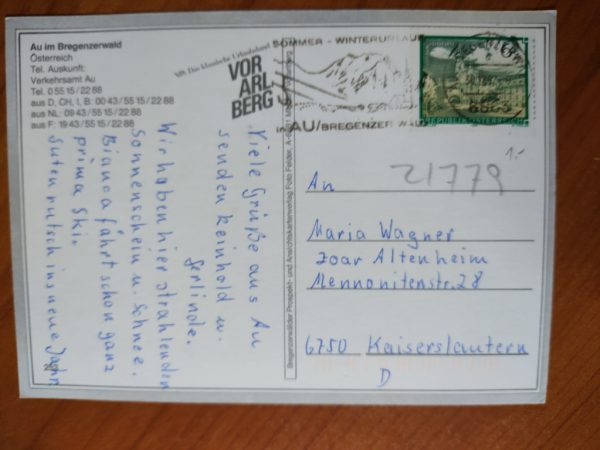 Au im Bregenzerwald
Österreich
Tel. Auskunft:
Verkehrsamt Au
Tel. 0 55 15/22 88
aus D, CH, I, B: 00 43/55 15/22 88
aus NL: 09 43/55 15/22 88
aus F: 19 43/55 15/22 88
Das klassische Urlaubsland
VOR
ARL
BERG
SOMMER - WINTERURLAUB
in AU/BREGENZER WALD
REPUBLIK ÖSTERREICH
Viele Grüße aus Au
senden Reinhold u.
Gerlinde.
Wir haben hier strahlenden
Sonnenschein u. Schnee.
Bianca fährt schon ganz
prima Ski.
Guten rutsch ins neue Jahr
Bregenzerwälder Prospekt- und Ansichtskartenverlag Foto Felder,
21779
1.-
An
Maria Wagner
Zoar Altenheim
Mennonitenstr. 28
6750 Kaiserslautern
D